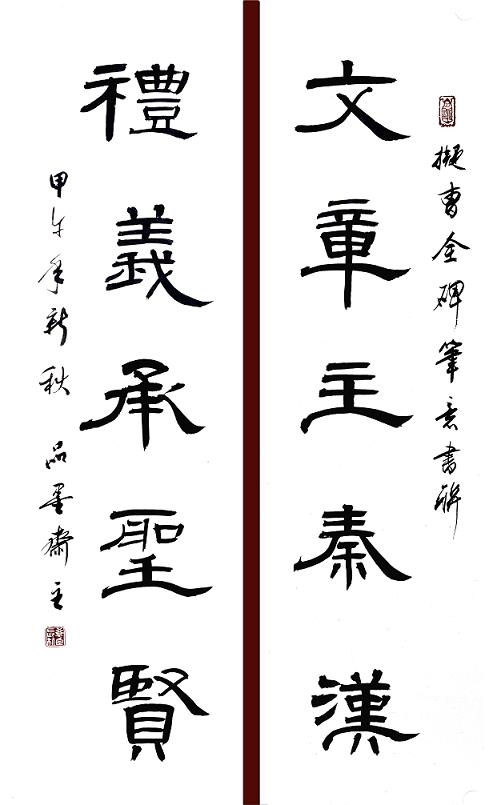 擬曹全碑筆意書聯
文章主秦漢
禮義承聖賢
甲午年新秋 品墨齋主